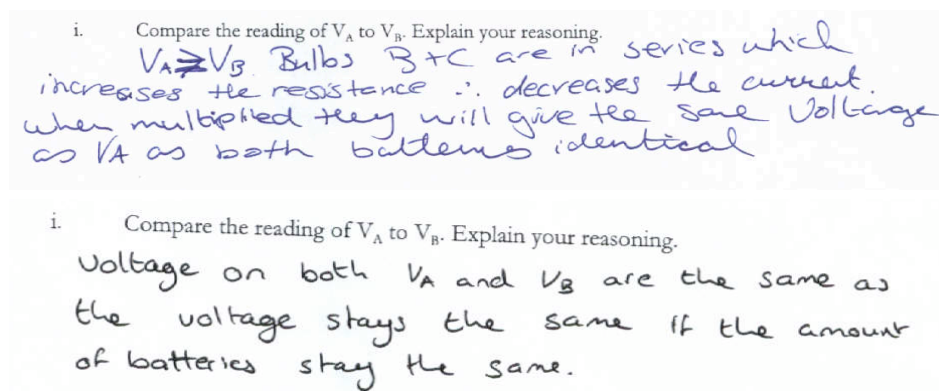 i. Compare the reading of V_A to V_B. Explain your reasoning.
V_A = V_B Bulbs B + C are in series which
increases the resistance ∴ decreases the current.
when multiplied they will give the same Voltage
as VA as both batteries identical
i. Compare the reading of V_A to V_B. Explain your reasoning.
Voltage on both VA and VB are the same as
the voltage stays the same if the amount
of batteries stay the same.